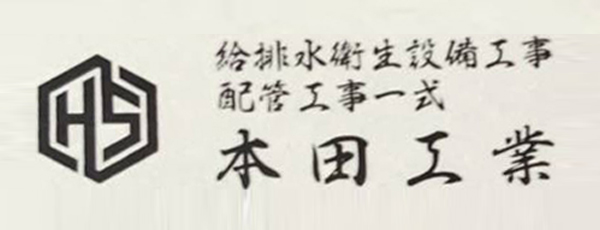 HS
給排水衛生設備工事
配管工事一式
本田工業